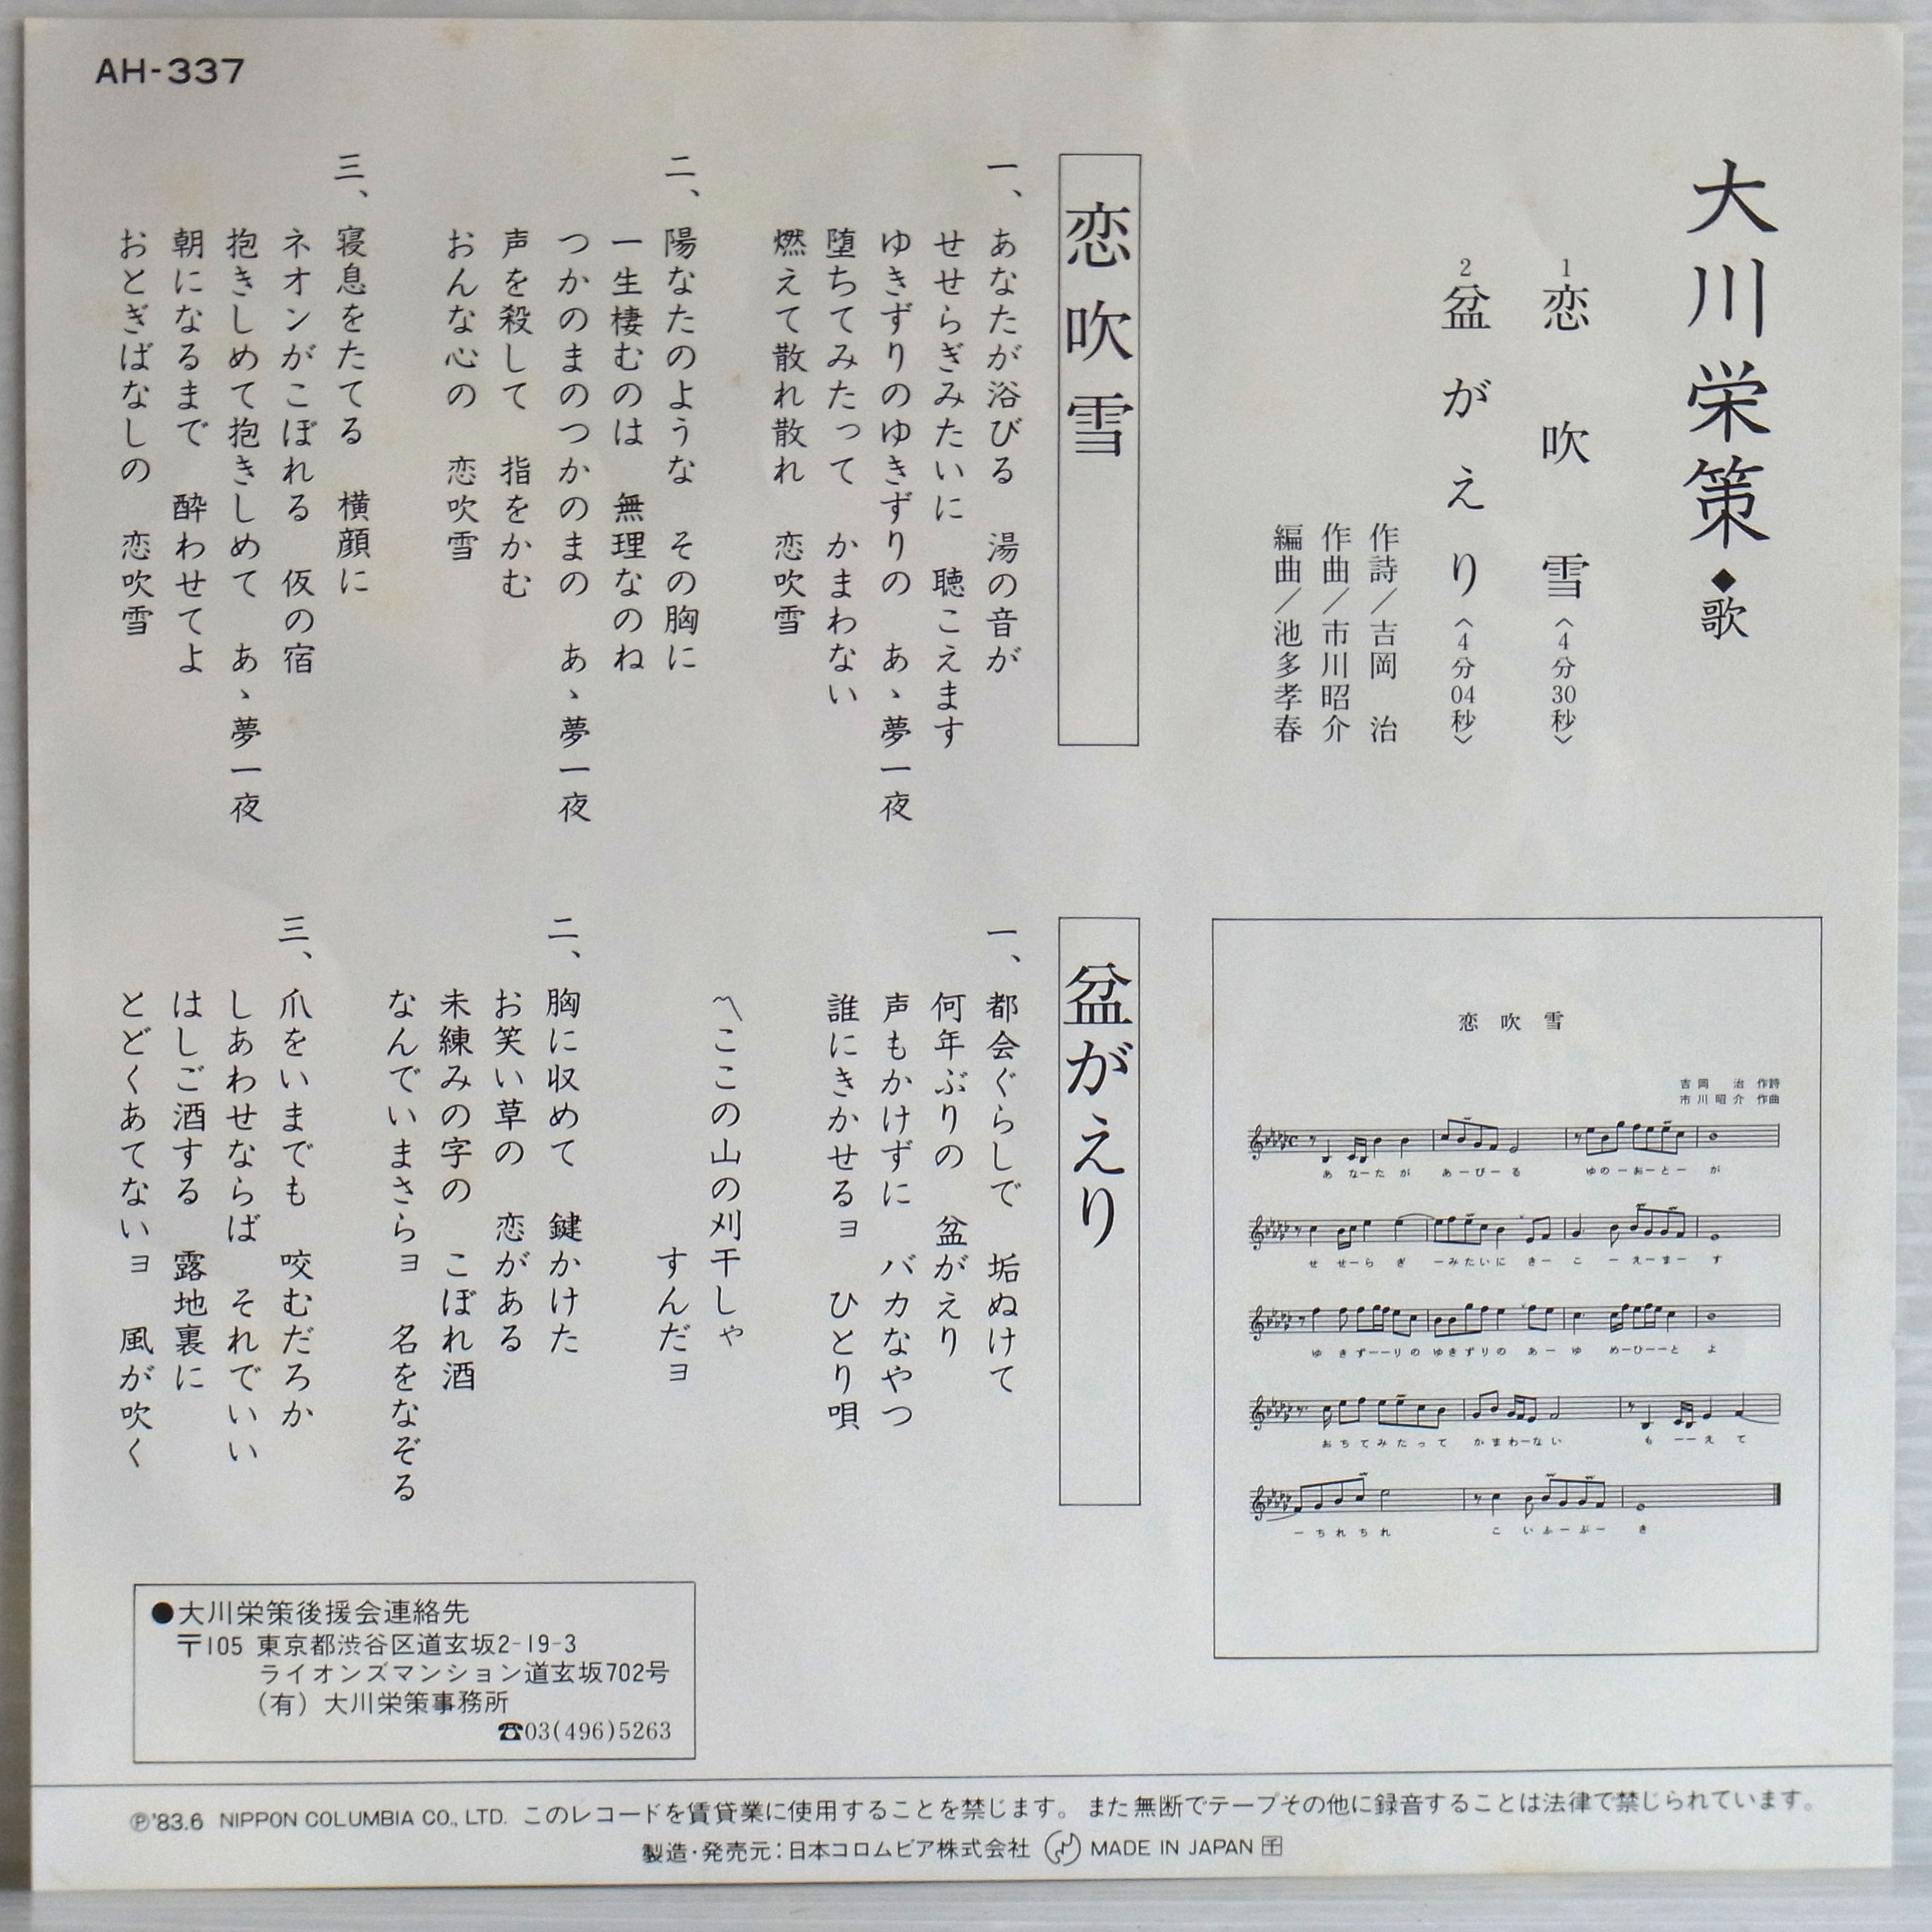 AH-337
大川栄策◆歌
1 恋吹雪〈4分30秒〉
2 盆がえり〈4分04秒〉
作詩/吉岡 治
作曲/市川昭介
編曲/池多孝春
恋吹雪
一、あなたが浴びる 湯の音が
せせらぎみたいに 聴こえます
ゆきずりのゆきずりの あゝ夢一夜
堕ちてみたって かまわない
燃えて散れ散れ 恋吹雪
二、陽なたのような その胸に
一生棲むのは 無理なのね
つかのまのつかのまの あゝ夢一夜
声を殺して 指をかむ
おんな心の 恋吹雪
三、寝息をたてる 横顔に
ネオンがこぼれる 仮の宿
抱きしめて抱きしめて あゝ夢一夜
朝になるまで 酔わせてよ
おとぎばなしの 恋吹雪
恋吹雪
吉岡 治 作詩
市川昭介 作曲
あ なーた が あーびーる ゆのーおーとー が
せ せーら ぎ ーみたいに きー こ ーえーまー す
ゆ きずーーりの ゆきずりの あー ゆ めーひーーと よ
おちてみたって かまわーない も ーーえ て
ーちれちれ こ いふーぶー き
盆がえり
一、都会ぐらしで 垢ぬけて
何年ぶりの 盆がえり
声もかけずに バカなやつ
誰にきかせるョ ひとり唄
〽ここの山の刈干しゃ
すんだョ
二、胸に収めて 鍵かけた
お笑い草の 恋がある
未練みの字の こぼれ酒
なんでいまさらョ 名をなぞる
三、爪をいまでも 咬むだろか
しあわせならば それでいい
はしご酒する 露地裏に
とどくあてないョ 風が吹く
●大川栄策後援会連絡先
〒105 東京都渋谷区道玄坂2-19-3
ライオンズマンション道玄坂702号
(有)大川栄策事務所
☎03(496)5263
℗'83.6 NIPPON COLUMBIA CO., LTD. このレコードを賃貸業に使用することを禁じます。また無断でテープその他に録音することは法律で禁じられています。
製造・発売元:日本コロムビア株式会社 MADE IN JAPAN